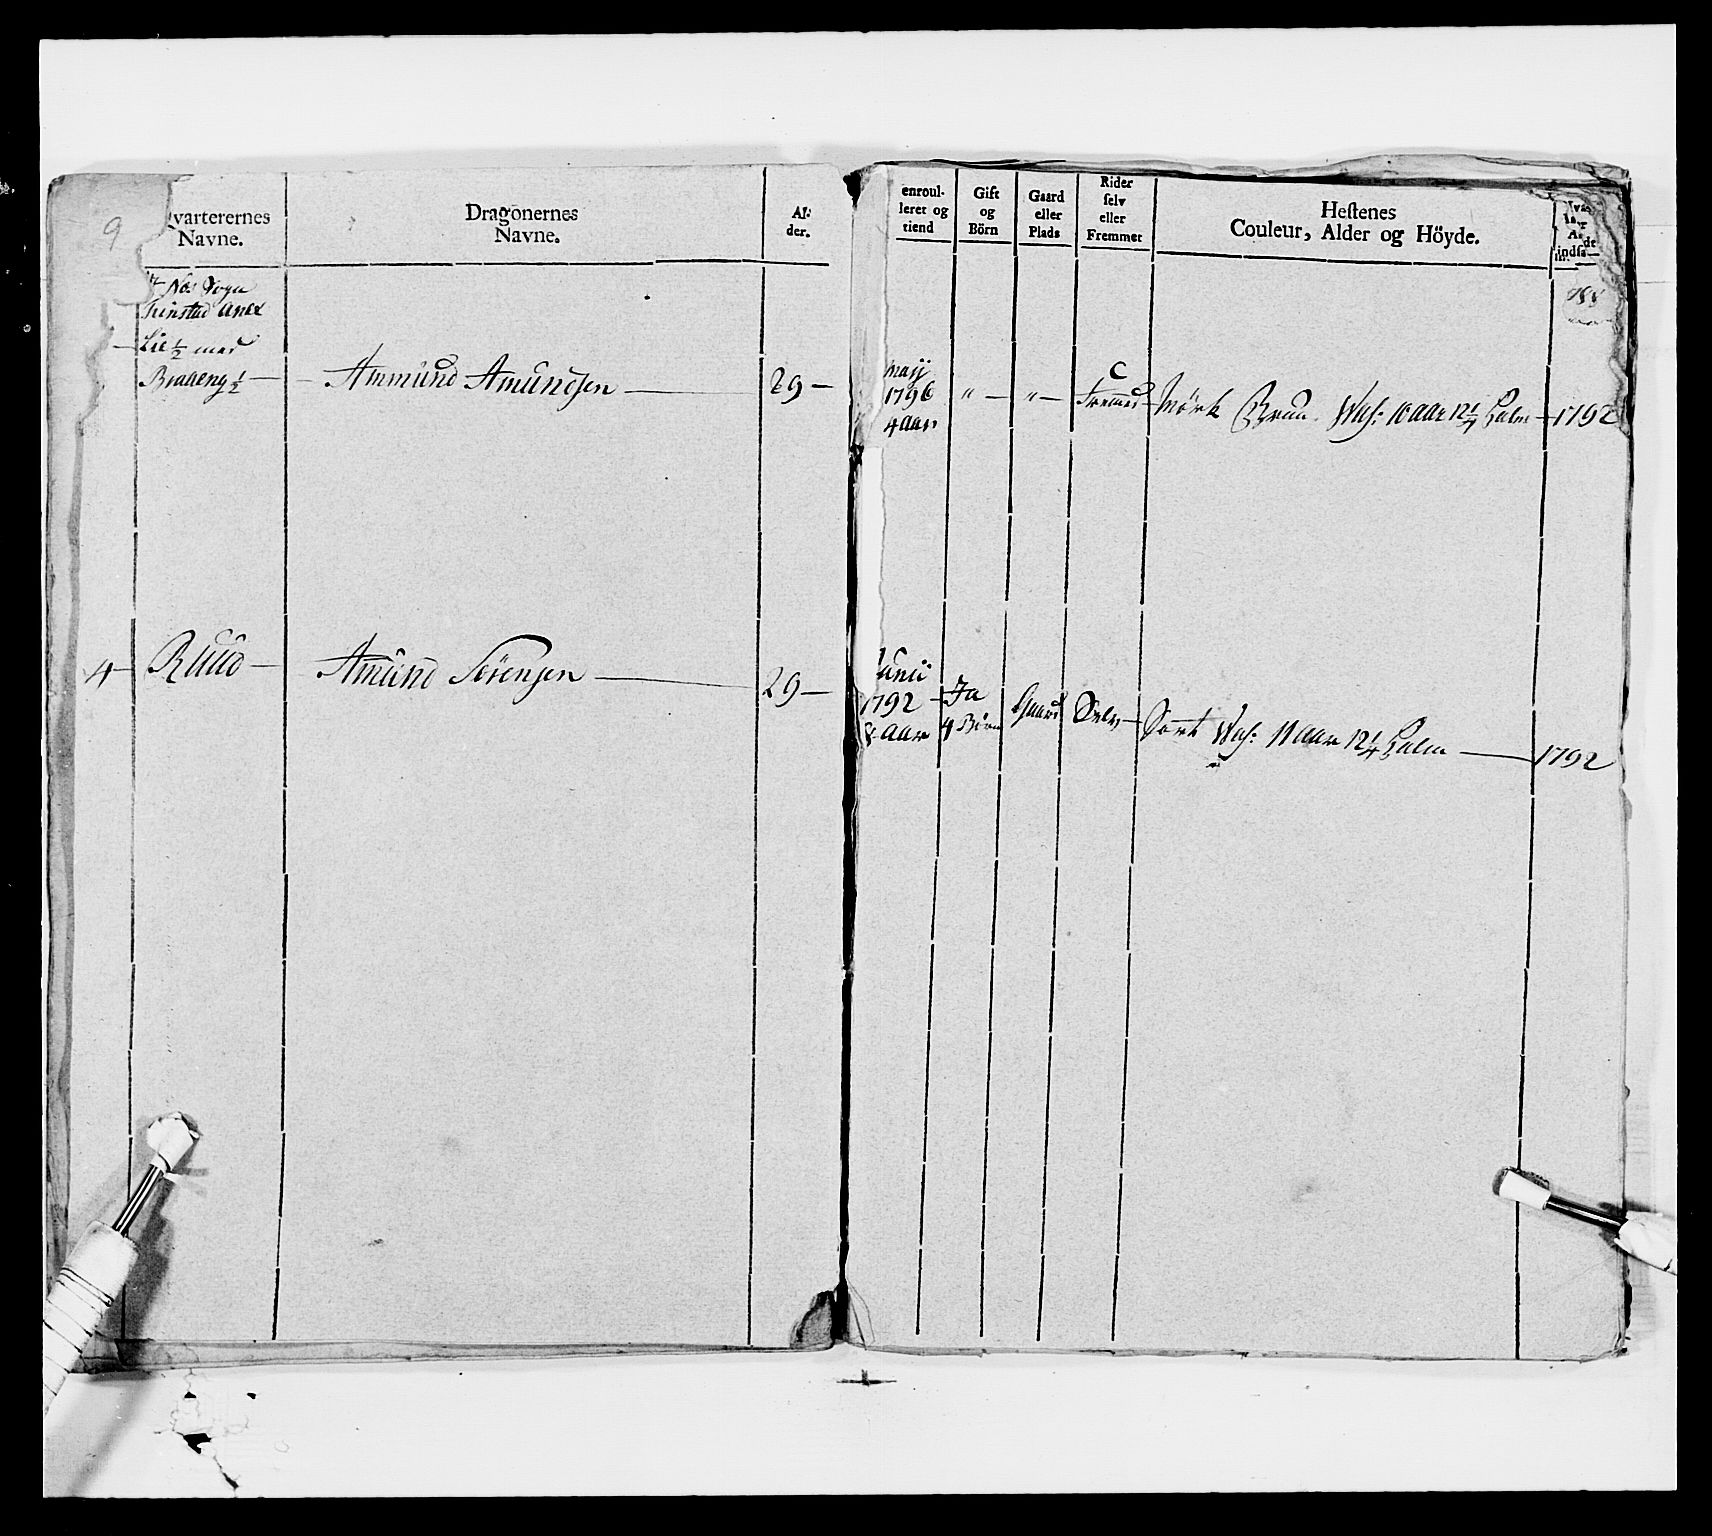 9
varterernes
Navne.
Dragonernes
Navne.
Al-
der.
enroul-
leret og
tiend
Gift
og
Börn
Gaard
eller
Plads
Rider
selv
eller
Fremmet
Hestenes
Couleur, Alder og Höyde.
indsa
Anex
Lie ½ med
Braaeng ½ — Ammund Amundsen — 29 —
Maij
1796
4 aar
" — " —
C
Fremed — Mörk Bruun Wal: 10 aar 12 ¼ Halm — 1792
4 — Ruud — Amund Sörensen — 29 —
Junii
1792 —
8 aar
Ja
4 Börn
Gaard
Selv — Sort Wal: 11 aar 12 ¼ Halm — 1792